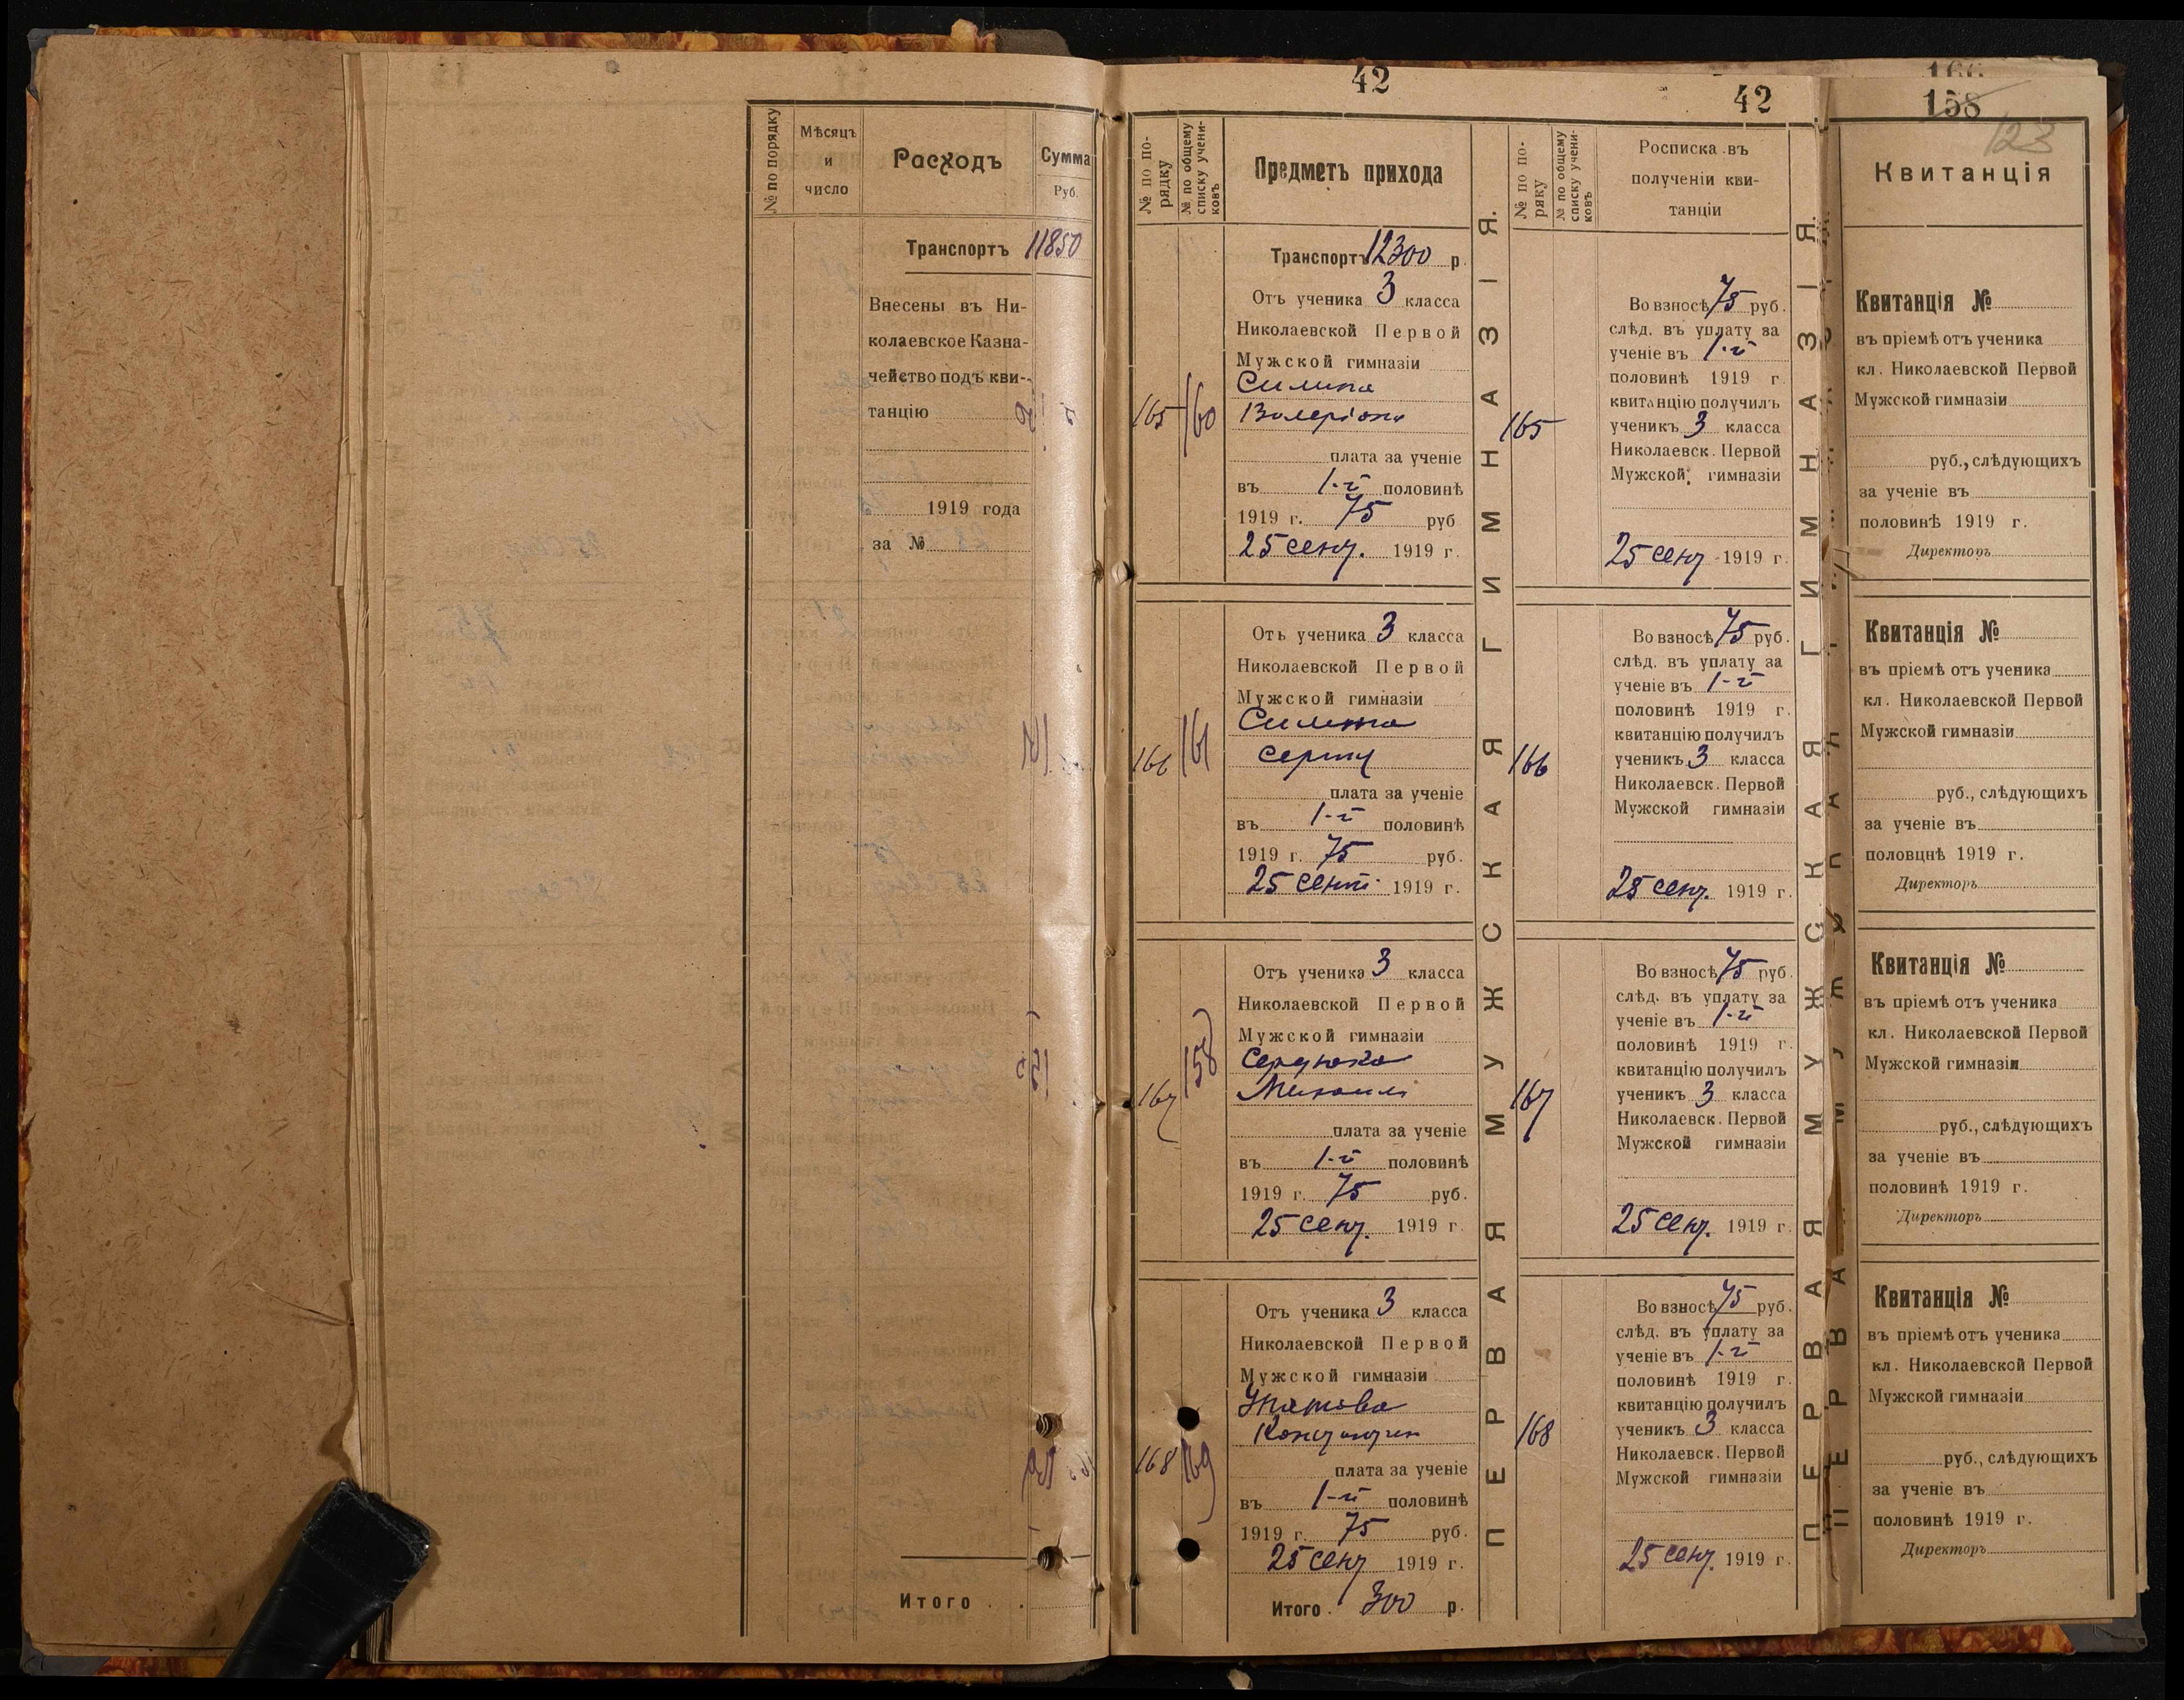 № по порядку
Мѣсяцъ
и
число
Расходъ
Сумма
Руб.
Транспортъ 11850
Внесены въ Ни-
колаевское Казна-
чейство подъ кви-
танцію
1919 года
за №
Итого . .
42
№ по по-
рядку
№ по общему
списку учени-
ковъ
Предметъ прихода
Транспортъ 12300 р.
165
160
Отъ ученика 3 класса
Николаевской Первой
Мужской гимназіи
Силина
Валеріана
плата за ученіе
въ 1-й половинѣ
1919 г. 75 руб
25 сент. 1919 г.
166
161
Отъ ученика 3 класса
Николаевской Первой
Мужской гимназіи
Силина
Сергѣя
плата за ученіе
въ 1-й половинѣ
1919 г. 75 руб.
25 сент. 1919 г.
167
158
Отъ ученика 3 класса
Николаевской Первой
Мужской гимназіи
Сердюка
Михаила
плата за ученіе
въ 1-й половинѣ
1919 г. 75 руб.
25 сент. 1919 г.
168
169
Отъ ученика 3 класса
Николаевской Первой
Мужской гимназіи
плата за ученіе
въ 1-й половинѣ
1919 г. 75 руб.
25 сент 1919 г.
Итого . 300 р.
ПЕРВАЯ МУЖСКАЯ ГИМНАЗІЯ.
42
№ по по-
ряку
№ по общему
списку учени-
ковъ
Росписка въ
полученіи кви-
танціи
165
Во взносѣ 75 руб.
слѣд. въ уплату за
ученіе въ 1-й
половинѣ 1919 г.
квитанцію получилъ
ученикъ 3 класса
Николаевск. Первой
Мужской гимназіи
25 сент 1919 г.
166
Во взносѣ 75 руб.
слѣд. въ уплату за
ученіе въ 1-й
половинѣ 1919 г.
квитанцію получилъ
ученикъ 3 класса
Николаевск. Первой
Мужской гимназіи
25 сент. 1919 г.
167
Во взносѣ 75 руб.
слѣд. въ уплату за
ученіе въ 1-й
половинѣ 1919 г.
квитанцію получилъ
ученикъ 3 класса
Николаевск. Первой
Мужской гимназіи
25 сент. 1919 г.
168
Во взносѣ 75 руб.
слѣд. въ уплату за
ученіе въ 1-й
половинѣ 1919 г.
квитанцію получилъ
ученикъ 3 класса
Николаевск. Первой
Мужской гимназіи
25 сент. 1919 г.
ПЕРВАЯ МУЖСКАЯ ГИМНАЗІЯ.
166
158
123
Квитанція
Квитанція №
въ пріемѣ отъ ученика
кл. Николаевской Первой
Мужской гимназіи
руб., слѣдующихъ
за ученіе въ
половинѣ 1919 г.
Директоръ
Квитанція №
въ пріемѣ отъ ученика
кл. Николаевской Первой
Мужской гимназіи
руб., слѣдующихъ
за ученіе въ
половцнѣ 1919 г.
Директоръ
Квитанція №
въ пріемѣ отъ ученика
кл. Николаевской Первой
Мужской гимназіи
руб., слѣдующихъ
за ученіе въ
половинѣ 1919 г.
Директоръ
Квитанція №
въ пріемѣ отъ ученика
кл. Николаевской Первой
Мужской гимназіи
руб., слѣдующихъ
за ученіе въ
половинѣ 1919 г.
Директоръ